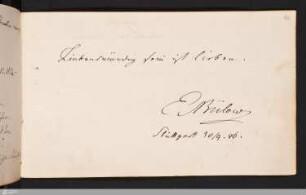 Liebenswürdig sein ist lieben.
E. Bülow
Stuttgart 30/4. 96.